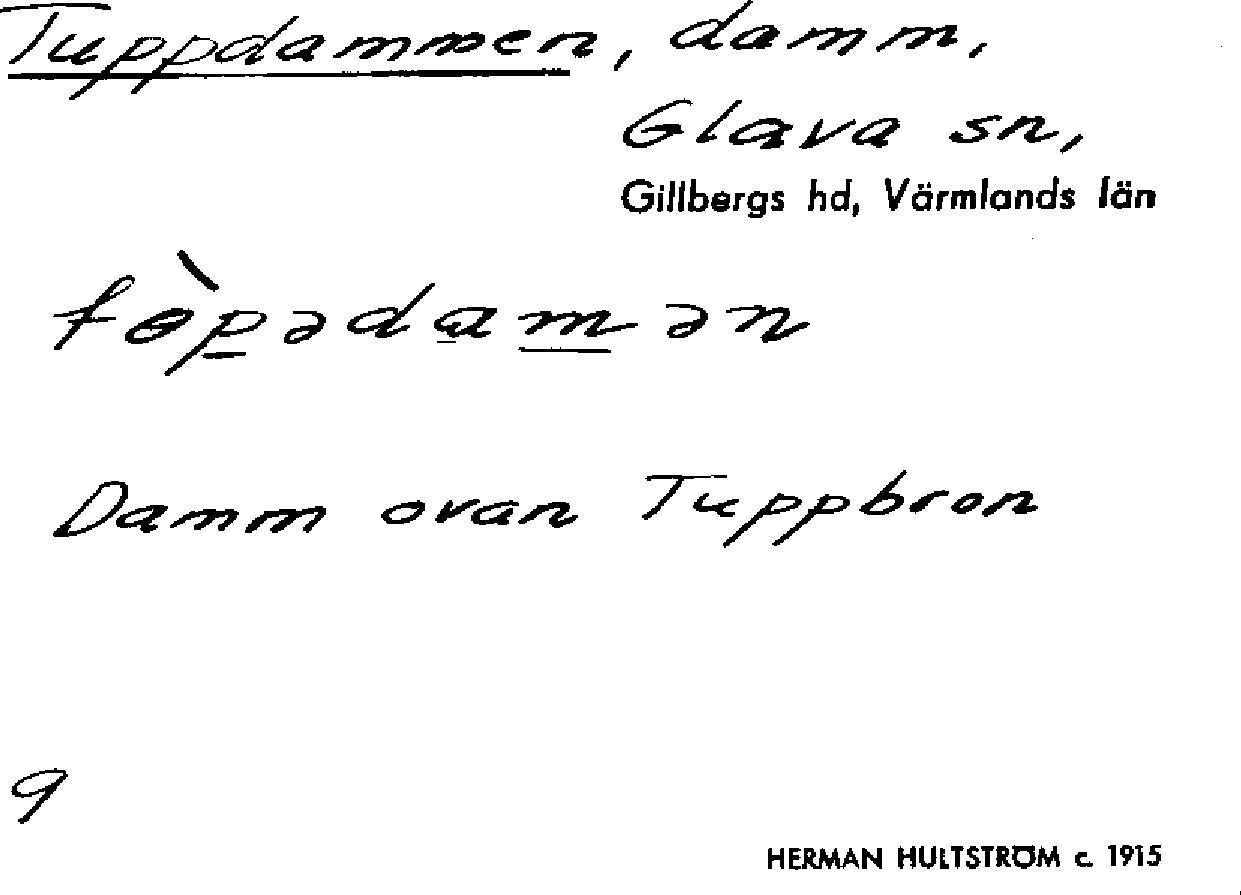 Tuppdammen, damm,
Glava sn,
Gillbergs hd, Värmlands län
tɵ̀p̲əda̲m̲ən
Damm ovan Tuppbron
9
HERMAN HULTSTRÖM c. 1915